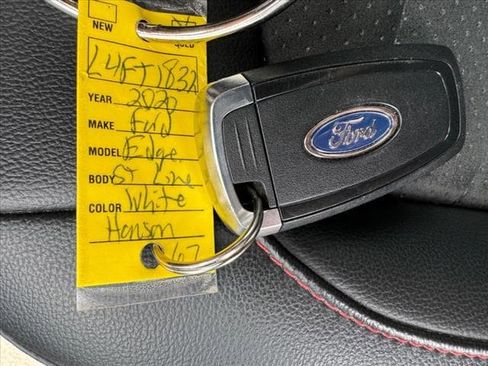 NEW
L4FT1832
YEAR 2020
MAKE Ford
MODEL Edge
BODY ST Line
COLOR White
Hanson
67
Ford